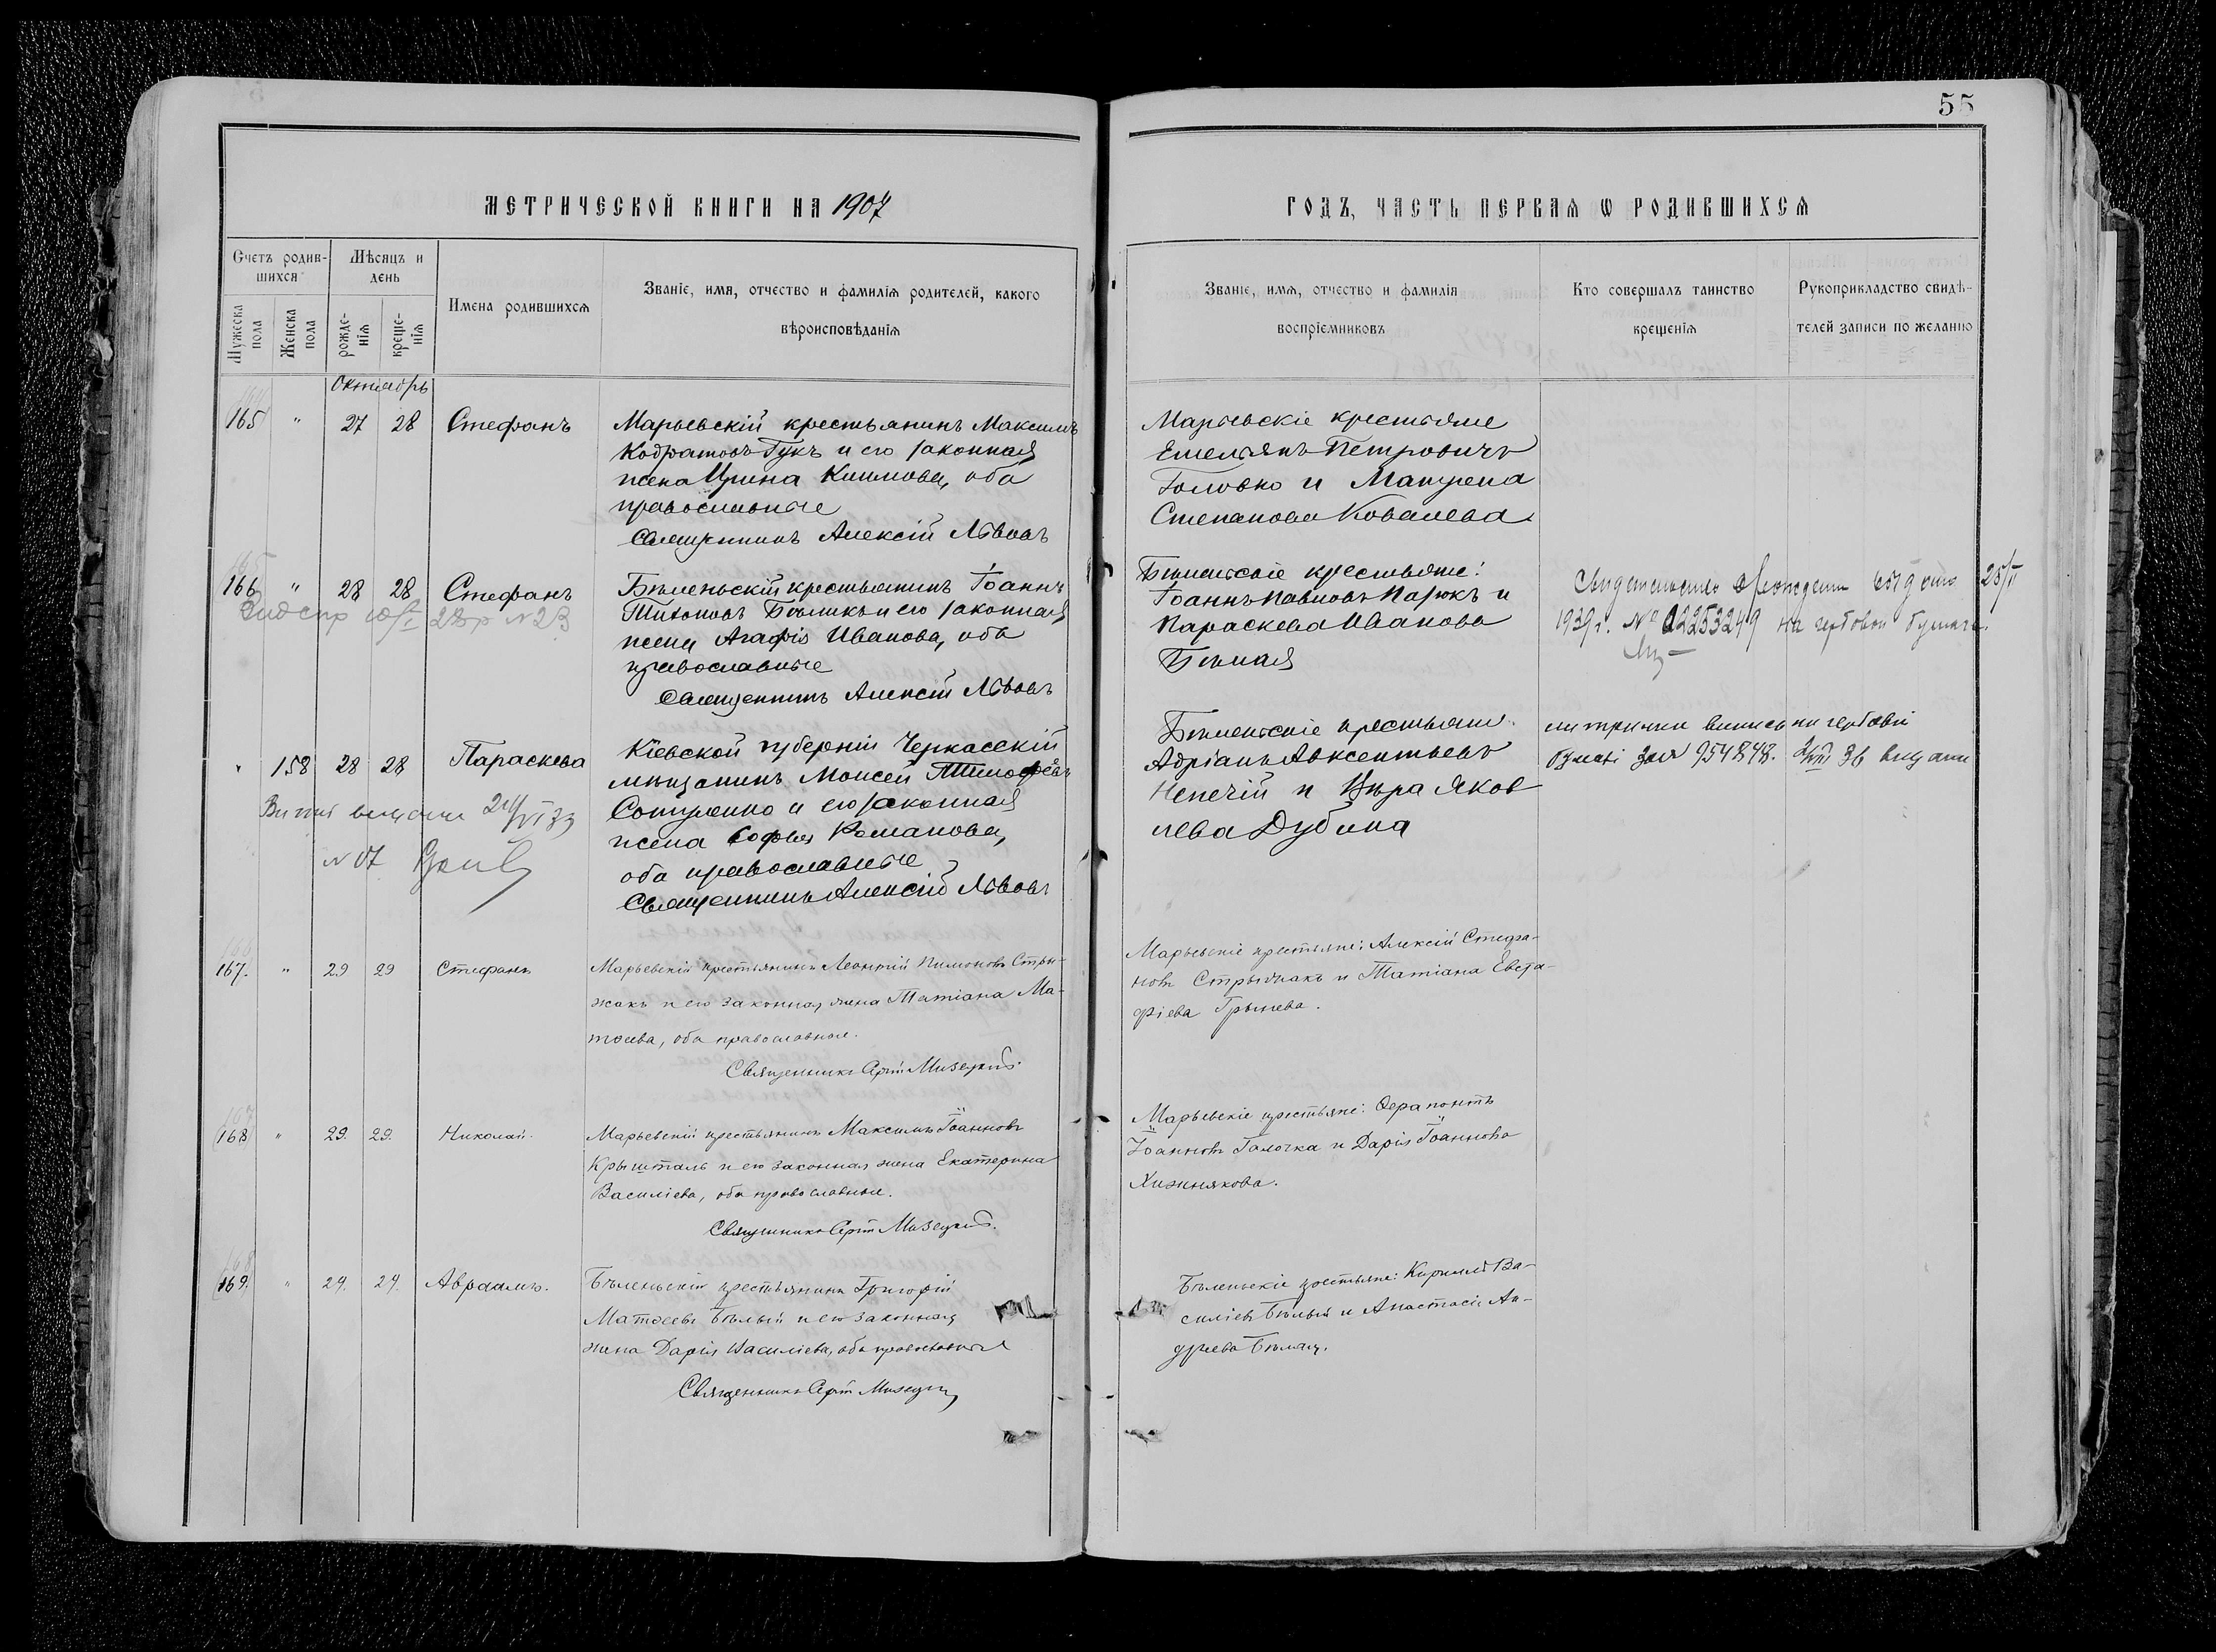 55
МЕТРИЧЕСКОЙ КНИГИ НА 1907
ГОДЪ, ЧАСТЬ ПЕРВАЯ Ѡ РОДИВШИХСЯ
Счетъ родив-
шихся
Мужеска пола
Женска пола
Мѣсяцъ и
день
рожде-
нія
креще-
нія
Имена родившихся
Званіе, имя, отчество и фамилія родителей, какого
вѣроисповѣданія
Званіе, имя, отчество и фамилія
воспріемниковъ
Кто совершалъ таинство
крещенія
Рукоприкладство свидѣ-
телей записи по желанію
Октябрь
165 " 27 28 Стефанъ
Марьевскій крестьянинъ Максимъ
Кодратовъ Гукъ и его законная
жена Ирина Климова, оба
православные
Священникъ Алексій Львовъ
Марьевскіе крестьяне
Емельянъ Петровичъ
Головко и Матрена
Степанова Ковалева
166 " 28 28 Стефанъ
Бѣленьскій крестьянинъ Іоаннъ
Тихоновъ Бѣликъ и его законная
жена Агафія Иванова, оба
православные
Священникъ Алексій Львовъ
Бѣленьскіе крестьяне:
Іоаннъ Павловъ Парюкъ и
Параскева Иванова
Бѣлая
Свидетельство о рождении выдано 25/
1939 г. № 02253249 на гербовой бумаге.
" 158 28 28 Параскева
Кіевской губерніи Черкасскій
мѣщанинъ Моисей Тимофѣевъ
Сотуленко и его законная
жена Софья Романова,
оба православные
Священникъ Алексій Львовъ
Бѣленьскіе крестьяне
Адріанъ Авксентьевъ
Непечій и Вѣра Яков
лева Дубина
метрични випись на гербові
бумазі 954848. 36 видани
видани 24/VI 33
№ 07
167. " 29 29 Стефанъ
Марьевскій крестьянинъ Леонтій Пимоновъ Стры-
жакъ и его законная жена Татіана Ма-
тѳеева, оба православные.
Священникъ Сергій Мизецкій.
Марьевскіе крестьяне: Алексій Стефа-
новъ Стрыжакъ и Татіана Евста-
фіева Грынева.
168 " 29. 29. Николай.
Марьевскій крестьянинъ Максимъ Іоанновъ
Крышталь и его законная жена Екатерина
Василіева, оба православные.
Священникъ Сергій Мизецкій.
Марьевскіе крестьяне: Ѳерапонтъ
Іоанновъ Галочка и Дарія Іоаннова
Хижнякова.
169. " 24. 24. Авраамъ.
Бѣленьскій крестьянинъ Григорій
Матѳеевъ Бѣлый и его законная
жена Дарія Василіева, оба православные
Священникъ Сергій Мизецкій
Бѣленьскіе крестьяне: Кириллъ Ва-
силіевъ Бѣлый и Анастасія Ан-
дреева Бѣлая.